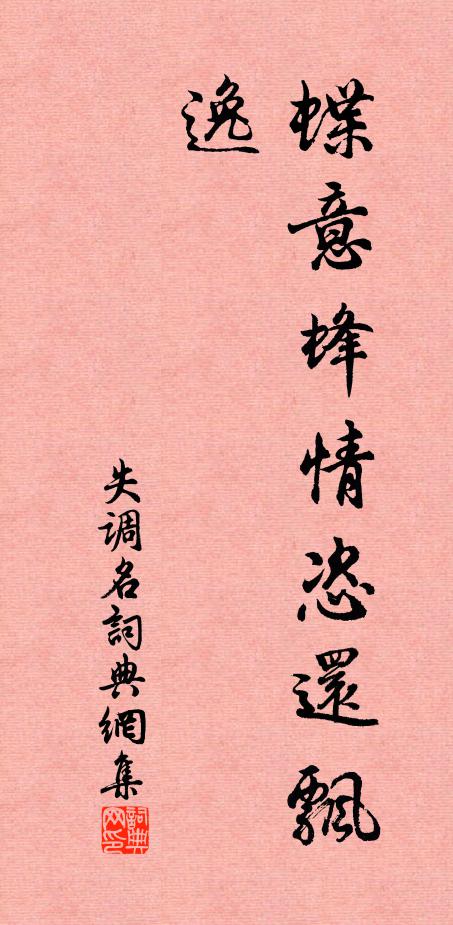 蝶意蜂情恣還飄
逸
失调名詞典網集
詞典
网印